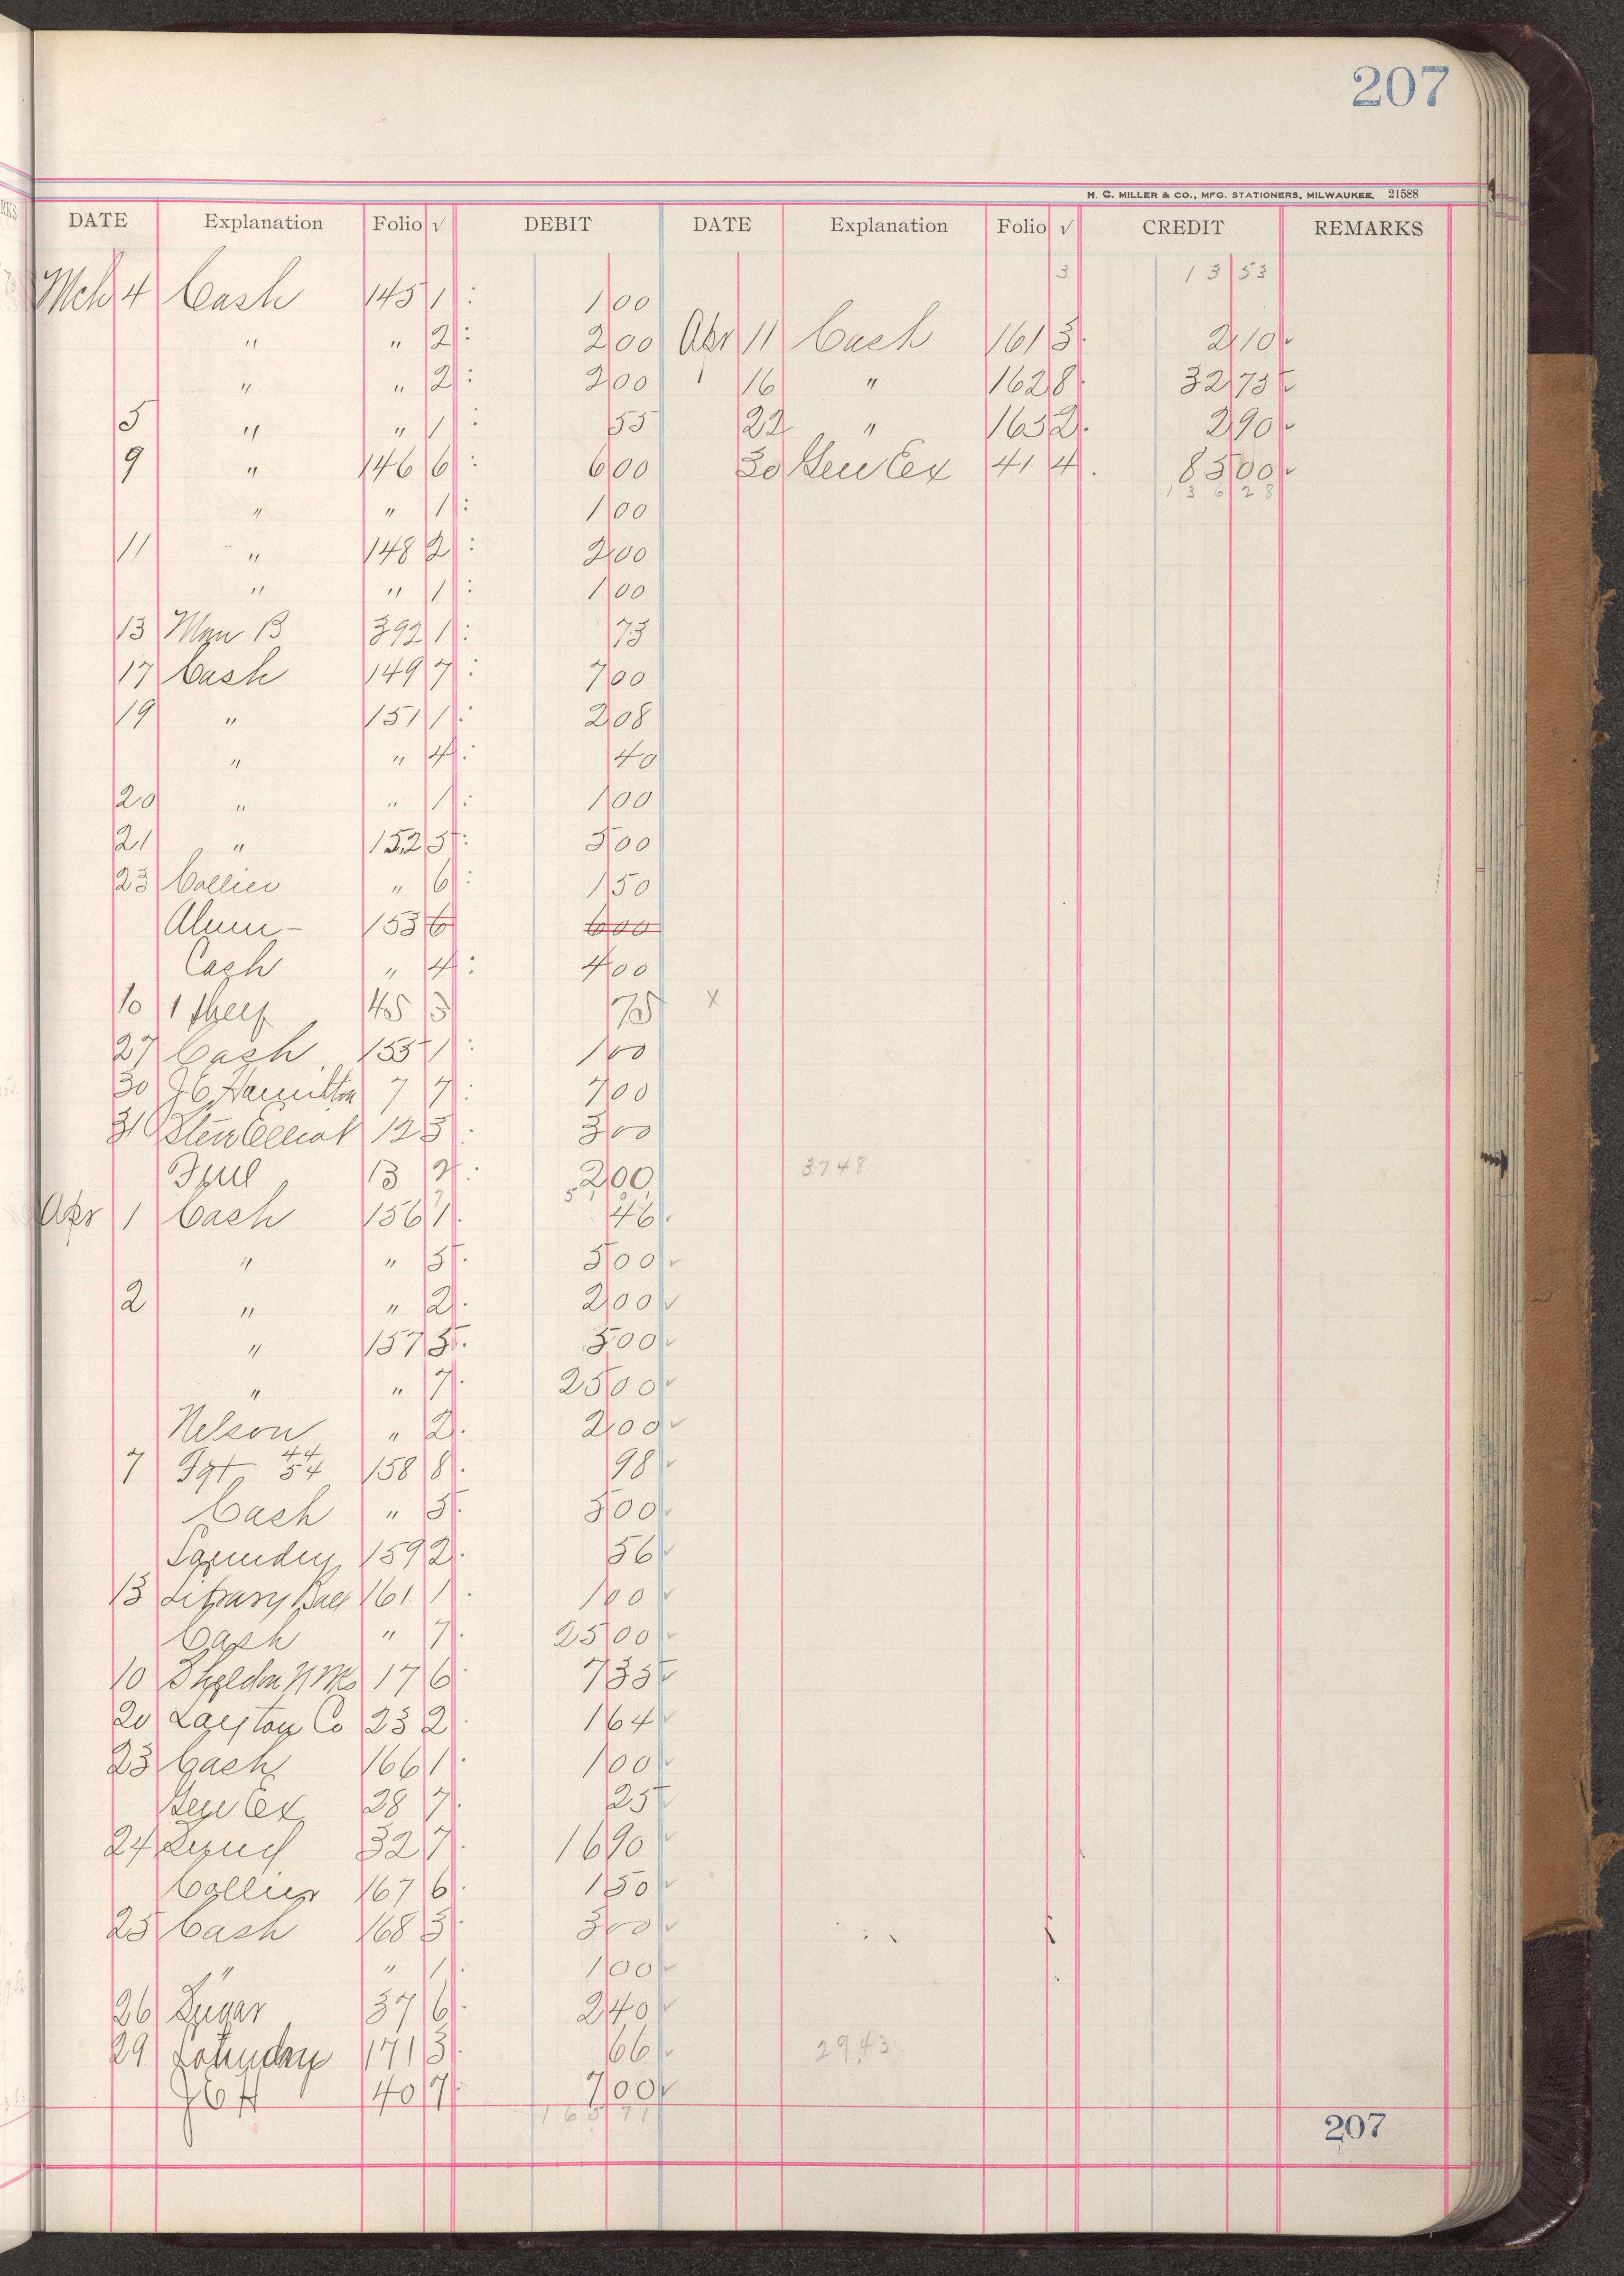 207
H. C. MILLER & CO., MFG. STATIONERS, MILWAUKEE. 21588
DATE Explanation Folio √ DEBIT DATE Explanation Folio √ CREDIT REMARKS
3 13 53
Mch 4 Cash 145 1 : 1 00
" " 2 : 2 00 Apr 11 Cash 161 3 2 10
" " 2 : 2 00 16 " 162 8 32 75
5 " " 1 : 55 22 " 165 2 2 90
9 " 146 6 : 6 00 30 Gen Ex 41 4 85 00
" " 1 : 1 00 136 28
11 " 148 2 : 2 00
" " 1 : 1 00
13 Man B 392 1 : 73
17 Cash 149 7 : 7 00
19 " 151 1 : 2 08
" " 4 : 40
20 " " 1 : 1 00
21 " 152 5 : 5 00
23 Collier " 6 : 1 50
Alum - 153 6 6 00
Cash " 4 : 4 00
10 1 45 3 75 x
27 Cash 155 1 : 1 00
30 J E Hamilton 7 7 : 7 00
31 Elliot 12 3 : 3 00
13 2 : 2 00 3748
Apr 1 Cash 156 1 46
" " 5 5 00
2 " " 2 2 00
" 157 5 5 00
" " 7 25 00
Nelson " 2 2 00
7 Fgt 44 54 158 8 98
Cash " 5 5 00
Laundry 159 2 56
13 Library 161 1 1 00
Cash " 7 25 00
10 Sheldon 17 6 7 35
20 Layton Co 23 2 1 64
23 Cash 166 1 1 00
Gen Ex 28 7 25
24 32 7 16 90
Collier 167 6 1 50
25 Cash 168 3 3 00
" " 1 1 00
26 Sugar 37 6 2 40
29 171 3 66 2943
J E H 40 7 7 00
165 71
207